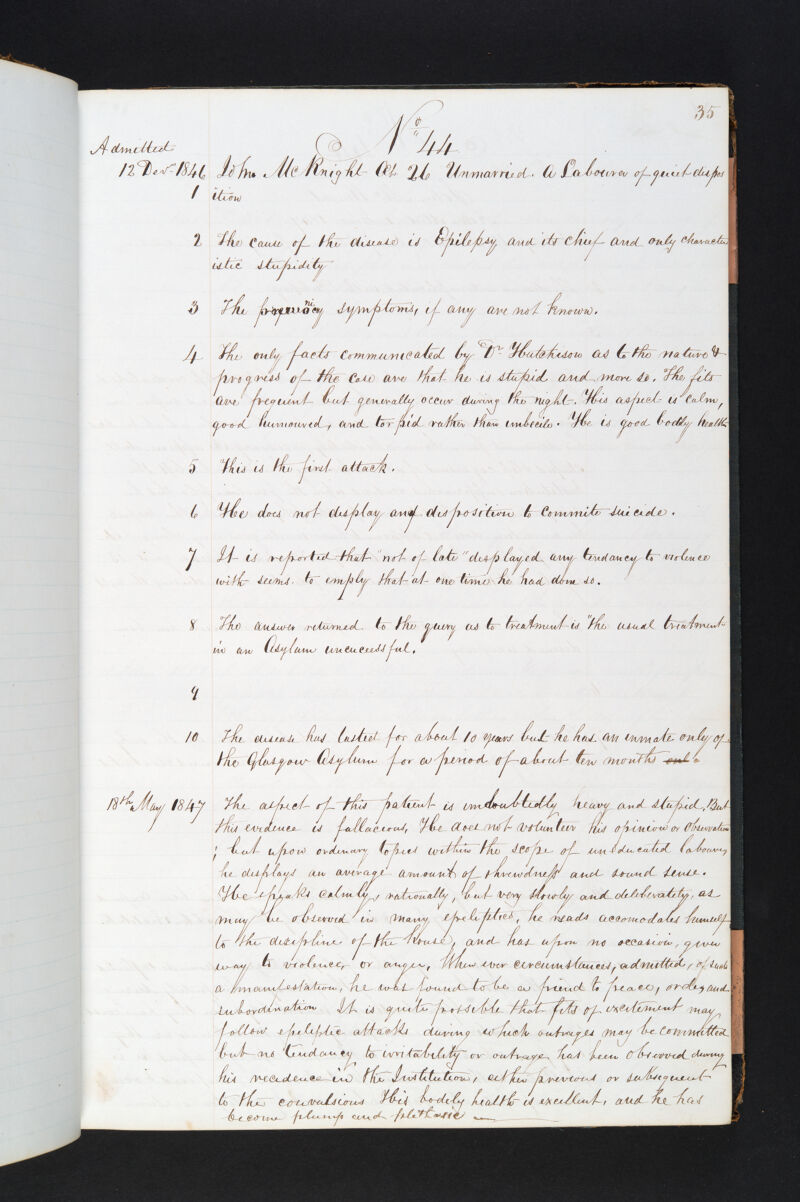 35
No 44
Admitted
12 Decr 1846 John McKnight Æt. 26 Unmarried. A Labourer of quiet dispos
1 ition
2 The cause of the disease is Epilepsy and its chief and only character
istic stupidity
3 The symptoms, if any are not known.
4 The only facts communicated by Dr Hutchison as to the nature &
progress of the case are that he is stupid and more so. The fits
are frequent but generally occur during the night. His aspect is calm,
good humoured, and torpid rather than imbecile. He is good bodily health
5 This is the first attack.
6 He does not display any disposition to commite suicide.
7 It is reported that "not of late" displayed any tendancy to violence
with seems to emply that at one time he had done so.
8 The answer returned to the query as to treatment is "the usual treatment
in an Asylum unsucessful.
9
10 The disease has lasted for about 10 years but he has an inmate only of
the Glasgow Asylum for a period of about ten months
18th May 1847 The aspect of this patient is undoubtedly heavy and stupid, But
this evidence is fallacious, He does not volunteer his opinion or observation
; but upon ordinary topics within the scope of uneducated labourer,
he displays an average amount of shrewdness and sound sense.
He speaks calmly, rationally, but very slowly and deliberately, as
may be observed in many epileptics, he accomodates himself
to the discipline of the house, and has upon no occasion, given
way to violence, or anger, When ever circumstances, admitted, of such
a manifestation, he was found to be a friend to peace, order, and
subordination It is quite possible that fits of excitement may
follow epileptic attacks during which outrages may be committed
but no tendancy to irritability or outrage has been observed during
his recidence in the Institution, either previous or subsequent
to the convulsions His bodily health is excellent, and he has
become plump and plethoric